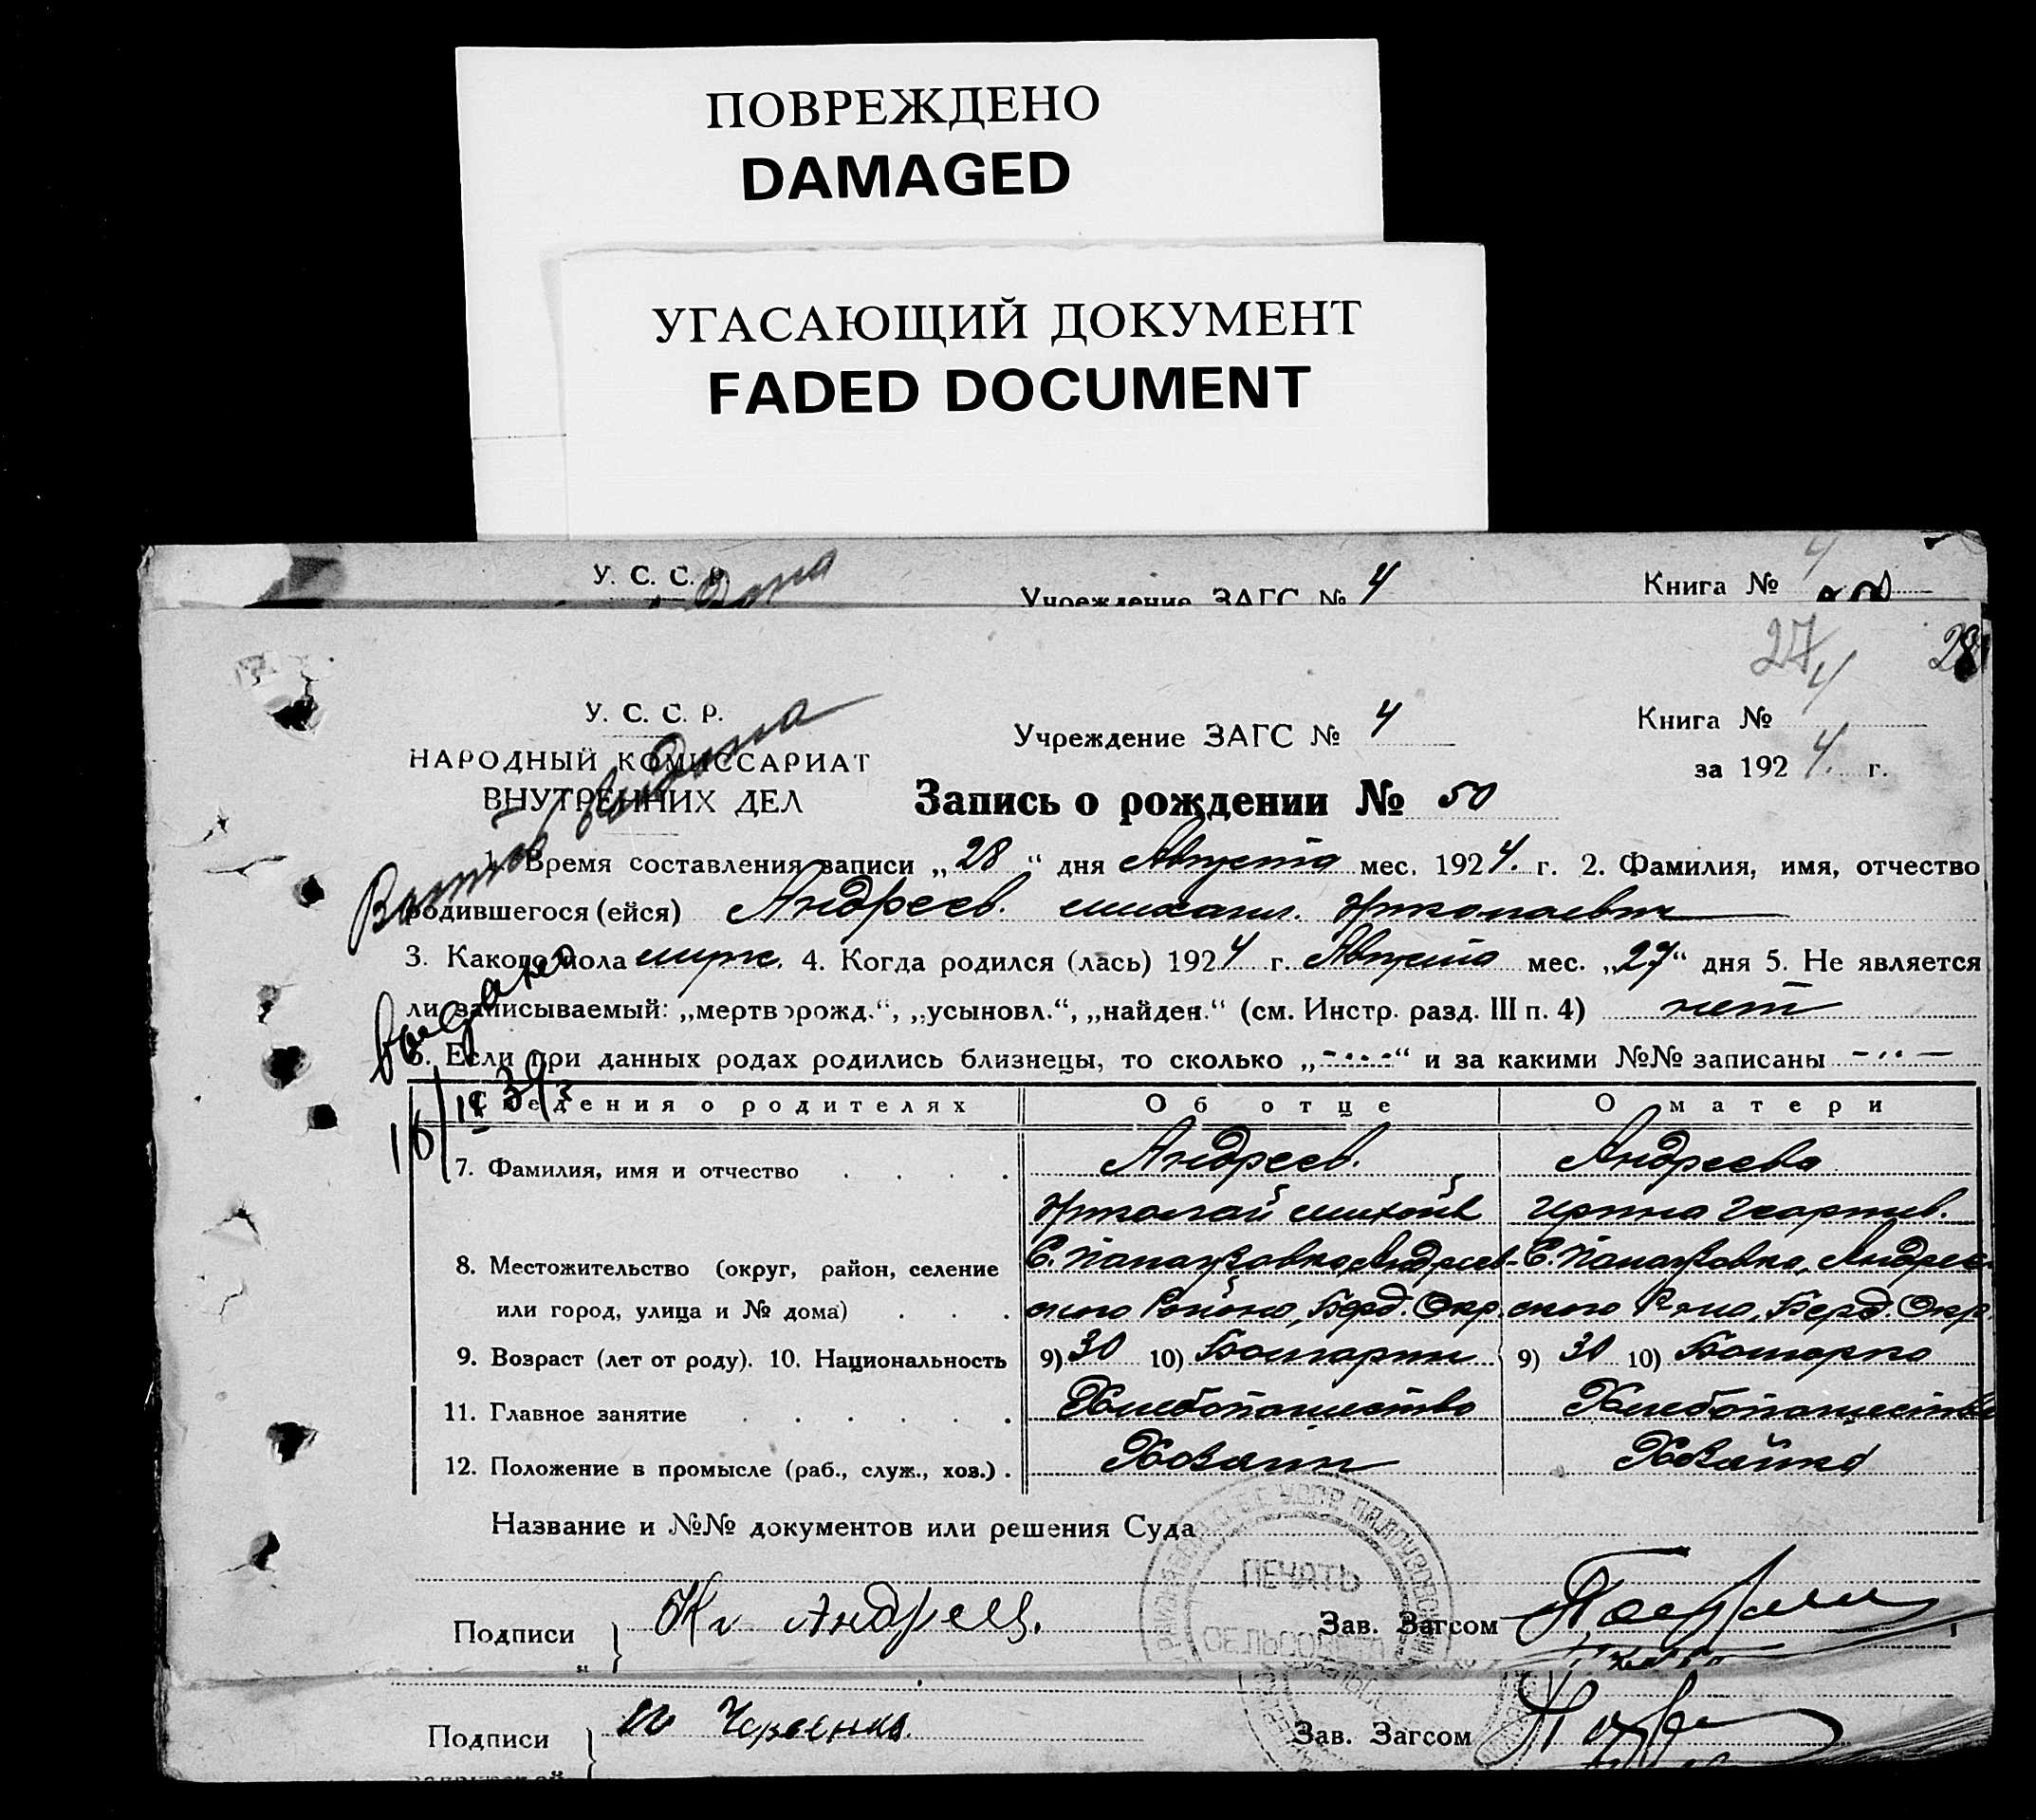 ПОВРЕЖДЕНО
DAMAGED
УГАСАЮЩИЙ ДОКУМЕНТ
FADED DOCUMENT
У. С. С. Р.
Учреждение ЗАГС № 4
Книга №
27 28
У. С. С. Р.
НАРОДНЫЙ КОМИССАРИАТ
ВНУТРЕННИХ ДЕЛ
Учреждение ЗАГС № 4
Книга № 4
за 1924 г.
Запись о рождении № 50
1. Время составления записи „28" дня Августа мес. 1924. г. 2. Фамилия, имя, отчество
родившегося (ейся) Андреев. Михаил. Николаевич
3. Какого пола муж. 4. Когда родился (лась) 1924 г. Августа мес. „27" дня 5. Не является
ли записываемый: „мертворожд.", „усыновл.", „найден." (см. Инстр. разд. III п. 4) нет
6. Если при данных родах родились близнецы, то сколько „-...-" и за какими №№ записаны -..-
выдано
Сведения о родителях Об отце О матери
7. Фамилия, имя и отчество Андреев. Андреева
Николай Михайл Ирина Георгиев.
8. Местожительство (округ, район, селение
или город, улица и № дома)
С. Палаузовка, Андреев- С. Палаузовка, Андреев-
ского Района, Берд. Окр. ского Р-на, Берд. Окр.
9. Возраст (лет от роду). 10. Национальность 9) 30 10) Болгарин 9) 30 10) Болгарка
11. Главное занятие Хлебопашество Хлебопашество
12. Положение в промысле (раб., служ., хоз.) Хозаин Хозайка
Название и №№ документов или решения Суда
ПЕЧАТЬ
СЕЛЬСОВЕТА
Подписи Андреев. Зав. Загсом
"
Подписи Зав. Загсом